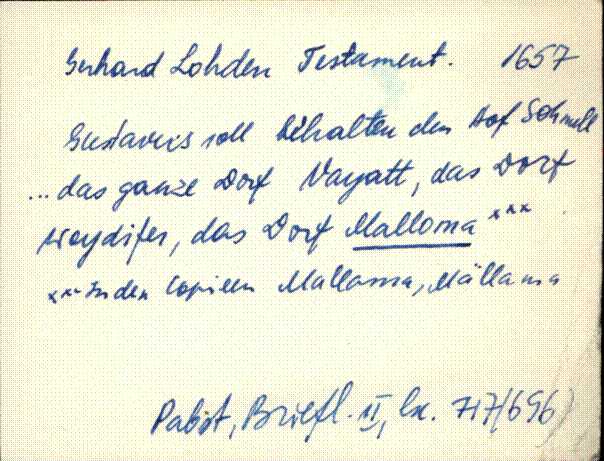 Gerhard Lohden Testament. 1657
Gustavus soll behalten den Hof Schnell
... das ganze Dorf Vayatt, das Dorf
Woydifer, das Dorf Malloma xxx
xxx In den Copieen Mallama, Mällama
Pabst, Briefl. II, Ex. 717(696)